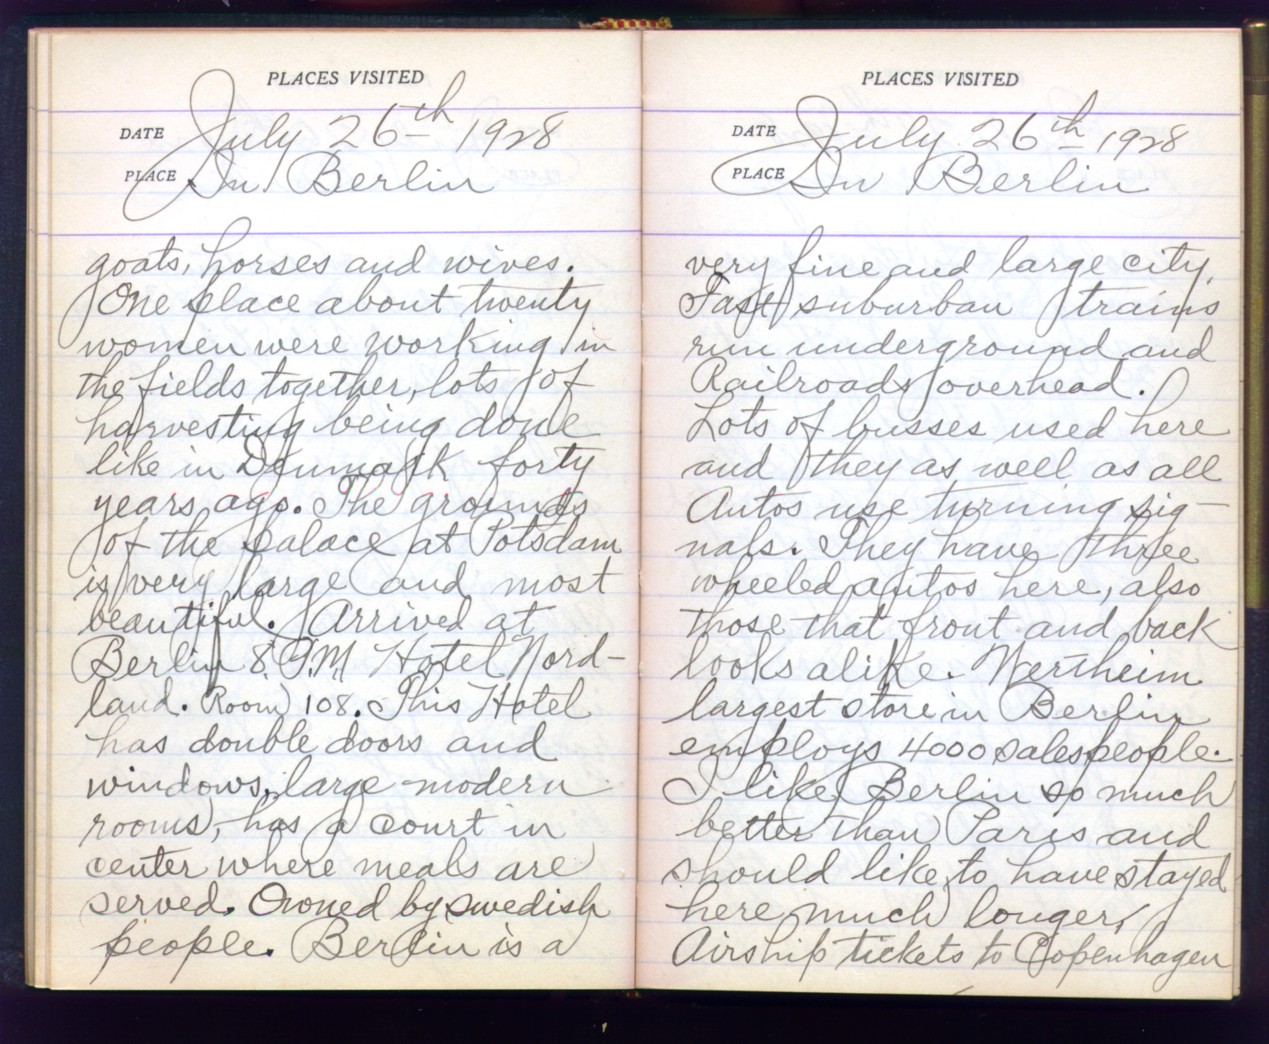 PLACES VISITED
DATE July 26th 1928
PLACE In Berlin
goats, horses and wives.
One place about twenty
women were working in
the fields together, lots of
harvesting being done
like in Denmark forty
years ago. The grounds
of the palace at Potsdam
is very large and most
beautiful. Arrived at
Berlin 8 P.M Hotel Nord-
land. Room 108. This Hotel
has double doors and
windows, large modern
rooms, has a court in
center where meals are
served. Owned by swedish
people. Berlin is a
PLACES VISITED
DATE July 26th 1928
PLACE In Berlin
very fine and large city.
Fast suburban trains
run underground and
Railroads overhead.
Lots of busses used here
and they as well as all
Autos use turning sig-
nals. They have three
wheeled autos here, also
those that front and back
looks alike. Wertheim
largest store in Berlin
employs 4000 salespeople.
I like Berlin so much
better than Paris and
should like to have stayed
here much longer,
Airship tickets to Copenhagen